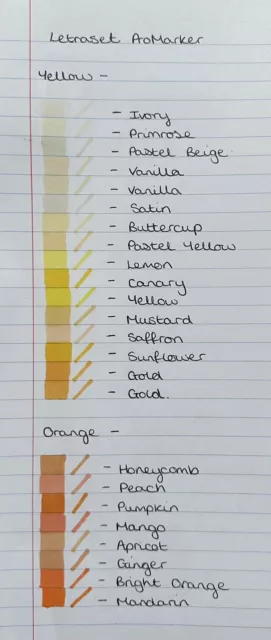 Letraset ProMarker
Yellow -
- Ivory
- Primrose
- Pastel Beige
- Vanilla
- Vanilla
- Satin
- Buttercup
- Pastel Yellow
- Lemon
- Canary
- Yellow
- Mustard
- Saffron
- Sunflower
- Gold
- Gold.
Orange -
- Honeycomb
- Peach
- Pumpkin
- Mango
- Apricot
- Ginger
- Bright Orange
- Mandarin